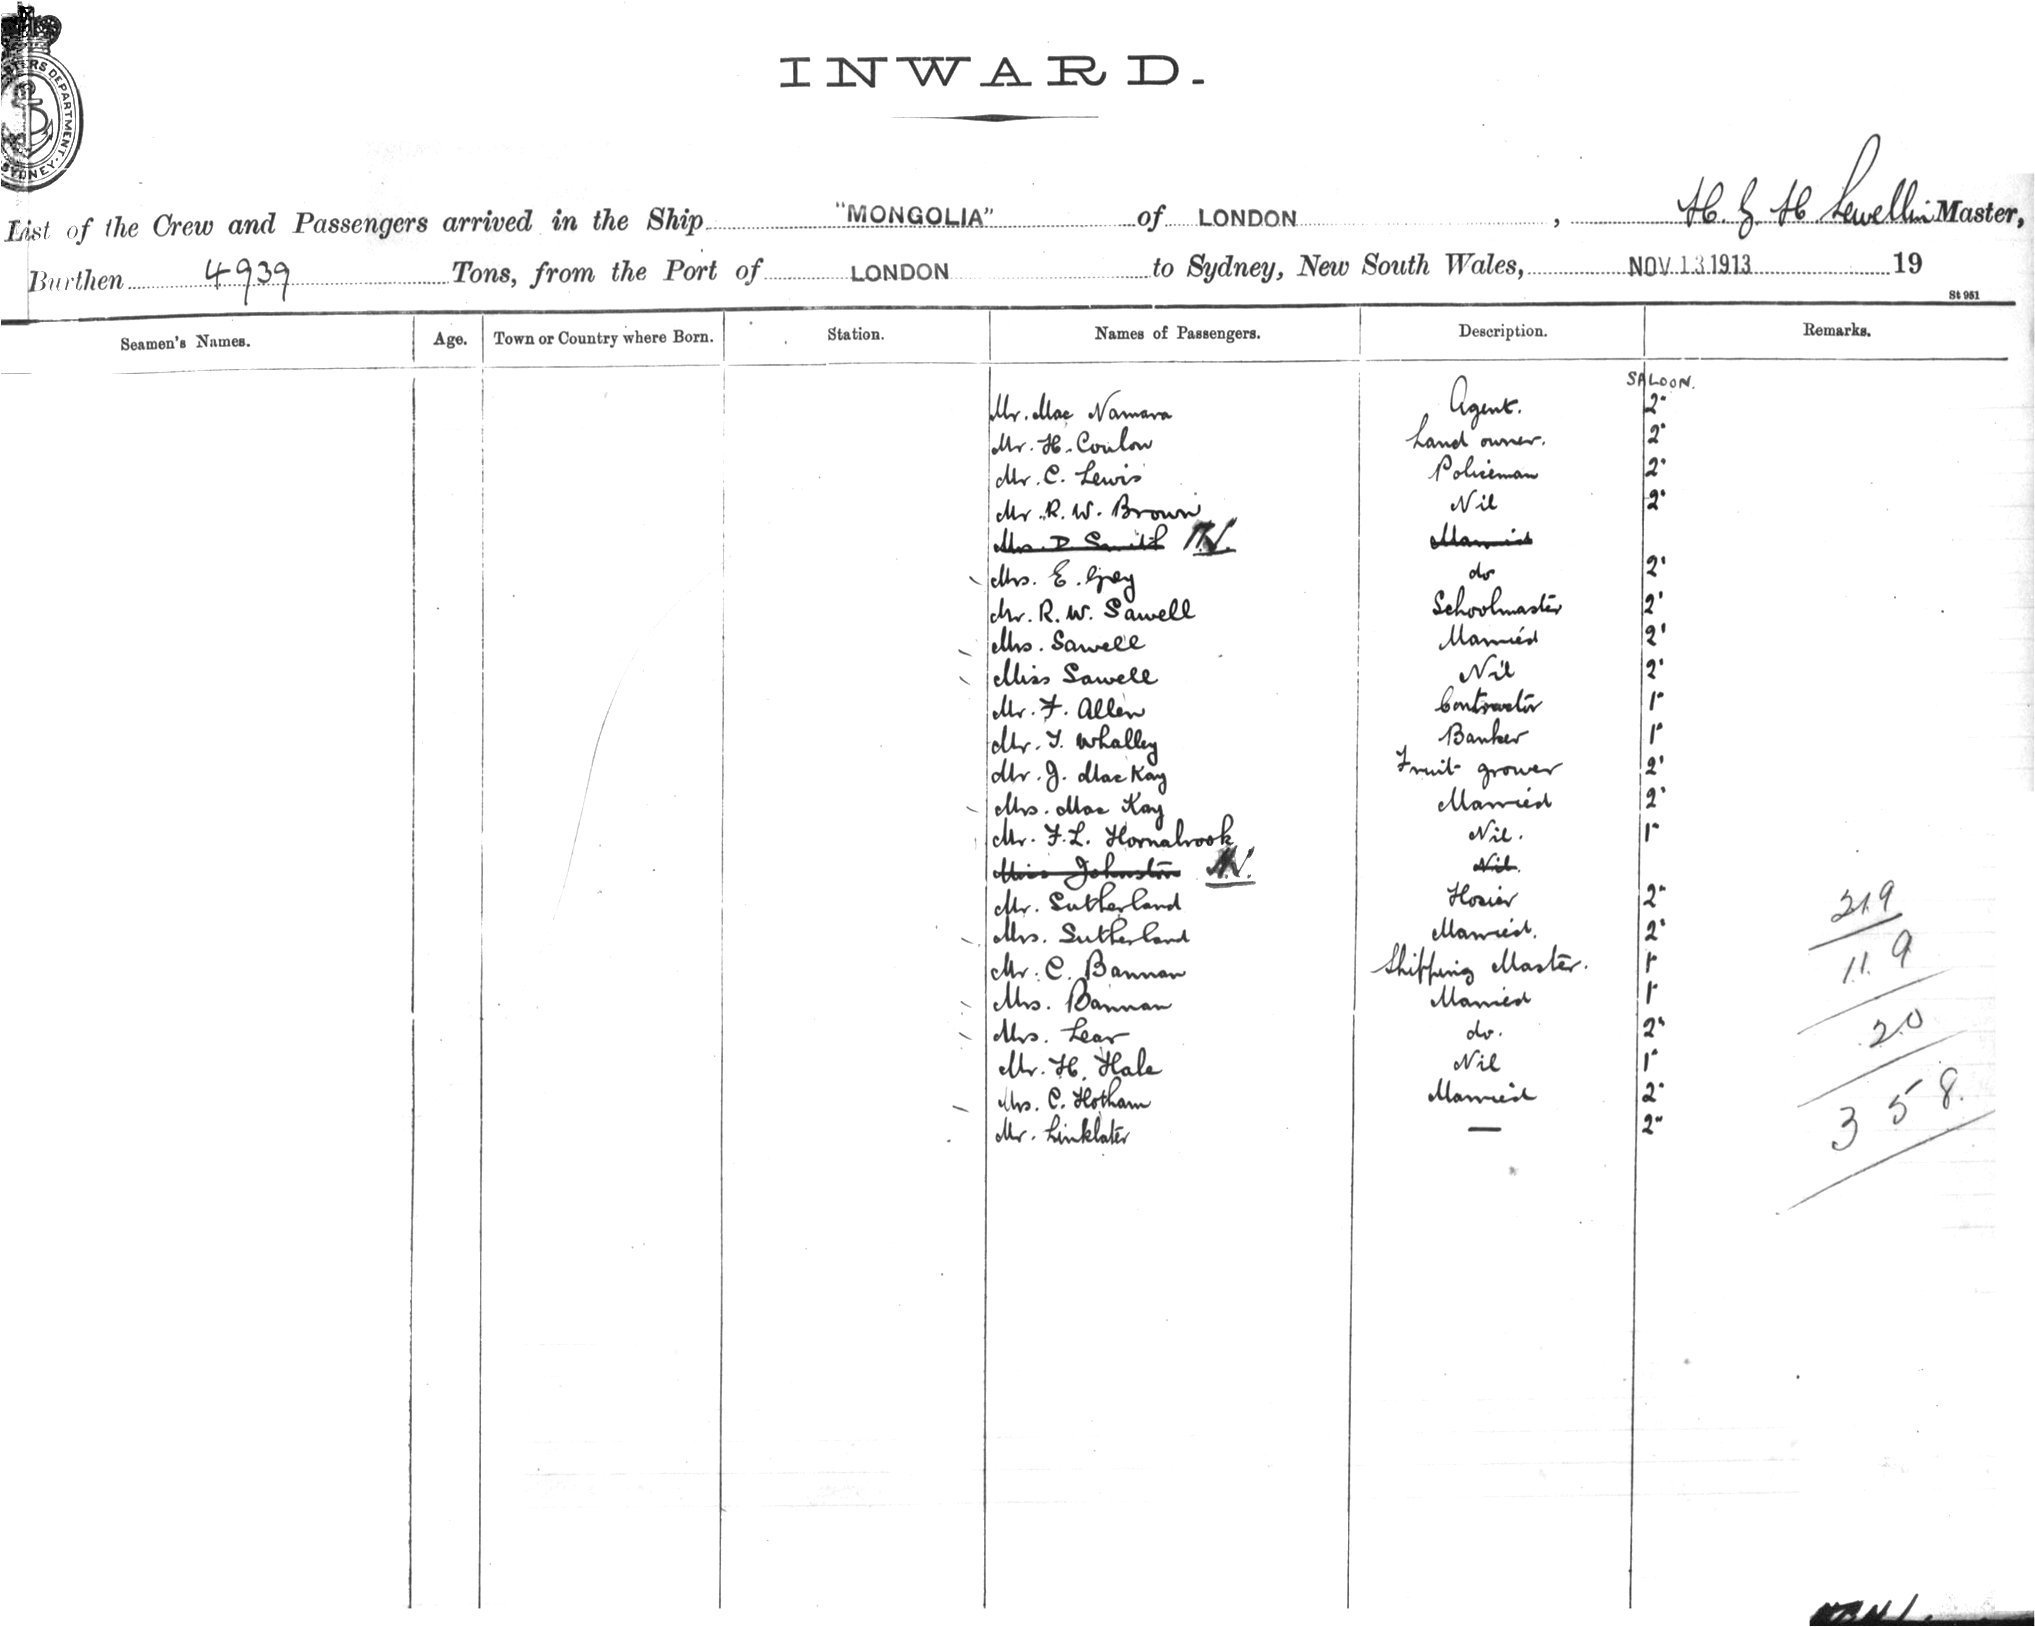 INWARD.
DEPARTMENT. SYDNEY.
List of the Crew and Passengers arrived in the Ship "MONGOLIA" of LONDON, H. G. H Lewellin Master,
Burthen 4939 Tons, from the Port of LONDON to Sydney, New South Wales, NOV 13 1913 19
St 951
Seamen's Names. Age. Town or Country where Born. Station. Names of Passengers. Description. Remarks.
SALOON.
Mr. Mac Namara Agent. 2"
Mr. H. Coulon Land owner. 2"
Mr. C. Lewis Policeman 2"
Mr. R. W. Brown Nil 2"
Mrs. D Smith N. Married
Mrs. E. Grey do 2"
Mr. R. W. Sawell Schoolmaster 2"
Mrs. Sawell Married 2"
Miss Sawell Nil 2"
Mr. F. Allen Contractor 1"
Mr. T. Whalley Banker 1"
Mr. J. MacKay Fruit grower 2"
Mrs. Mac Kay Married 2"
Mr. F. L. Hornabrook Nil. 1"
Miss Johnston N. Nil.
Mr. Sutherland Hosier 2"
Mrs. Sutherland Married. 2"
Mr. C. Bannan Shipping Master. 1"
Mrs. Bannan Married 1"
Mrs. Lear do. 2"
Mr. H. Hale Nil 1"
Mrs. C. Hotham Married 2"
Mr. Linklater — 2"
219
119
20
358.